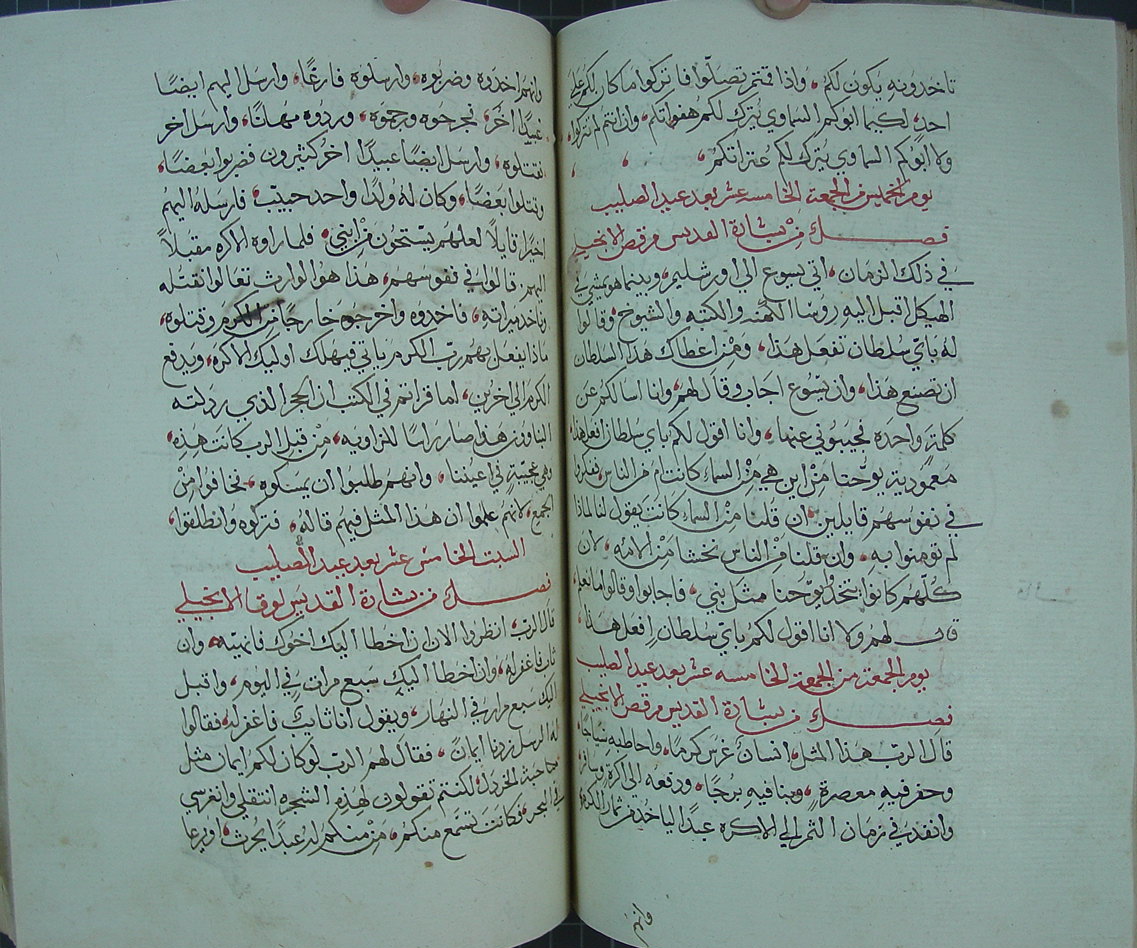 تاخدونه يكون لكم، واذا قمتم تصلّوا فاتركوا ما كان لكم على
احدٍ لكيما ابوكم السماوي يُترك لكم هفواتكم، وان انتم لم تتركوا،
ولا ابوكم السماوي يترك لكم عثراتكم،
يوم الخميس من الجمعة الخامسة عشر بعد عيد الصليب
فصل من بشارة القديس مرقص الانجيلي
في ذلك الزمان، اتي يسوع الى اورشليم، وبينما هو يمشي في
الهيكل اقبل اليه روسا الكهنه والكتبه والشيوخ وقالوا
له باي سلطان تفعل هذا، ومن اعطاك هذا السلطان
ان تصنع هذا، وان يسوع اجاب وقال لهم، وانا اسالكم عن
كلمةٍ واحده تجيبوني عنها، وانا اقول لكم باي سلطان افعل هذا،
معمودية يوحنا من اين هي من السماء كانت ام من الناس، ففكروا
في نفوسهم قايلين، ان قلنا من السماء كانت يقول لنا لماذا
لم تومنوا به، وان قلنا من الناس نخشا من الامه، لان
كلّهم كانوا يتخذوا يوحنا مثل نبي، فاجابوا وقالوا ما نعلم
قال لهم ولا انا اقول لكم باي سلطان افعل هذا،
يوم الجمعة من الجمعة الخامسه عشر بعد عيد الصليب
فصل من بشارة القديس مرقص الانجيلي
قال الربّ هذا المثل، انسانٌ غرس كرمًا، واحاط به سياجًا،
وحفر فيه معصرةٍ، وبنا فيه برجًا، ودفعه الى اكرةٍ وسافر
وانفذ في زمان الثمر الى الاكره عبدًا لياخد من ثمار الكرم،
وانهم
وانهم اخدوه وضربوه، وارسلوه فارغًا، وارسل اليهم ايضًا
عبدًا اخر، فجرحوه ورجموه، وردوه مهانًا، وارسل اخر
فقتلوه، وارسل ايضًا عبيدًا اخر كثيرون فضربوا بعضًا،
وقتلوا بعضًا، وكان له ولدًا واحد حبيبٌ، فارسله اليهم
اخيرًا قايلاً لعلهم يستحون من ابني، فلما راوه الاكره مقبلاً
اليهم، قالوا في نفوسهم، هذا هو الوارث تعالوا نقتله
وناخد ميراته، فاخدوه واخرجوه خارجًا من الكرم وقتلوه،
ماذا يفعل بهم ربّ الكرم ياتي فيهلك اوليك الاكره، ويدفع
الكرم الى اخرين، اما قراتم في الكتب ان الحجر الذي رذلته
البناوون هذا صار راسًا للزاويه، من قبل الرب كانت هذه،
وهي عجيبة في اعيننا، وانهم طلبوا ان يمسكوه، فخافوا من
الجمع، لانهم علموا ان هذا المثل فيهم قاله، فتركوه وانطلقوا،
السبت الخامس عشر بعد عيد الصليب
فصل من بشارة القديس لوقا الانجيلي
قال الربّ، انظروا الان ان اخطا اليك اخوك فانهيه، وان
تاب فاغفر له، وان اخطا اليك سبع مرات في اليوم، واقبل
اليك سبع مرار في النهار، ويقول انا تايبٌ فاغفر له، فقالوا
له الرسل زدنا ايمان، فقال لهم الربّ لو كان لكم ايمان مثل
حبة الخردل، لكنتم تقولون لهذه الشجره انتقلي وانغرسي
في البحر، فكانت تسمع منكم، من منكم له عبدًا يحرث، او يرعا